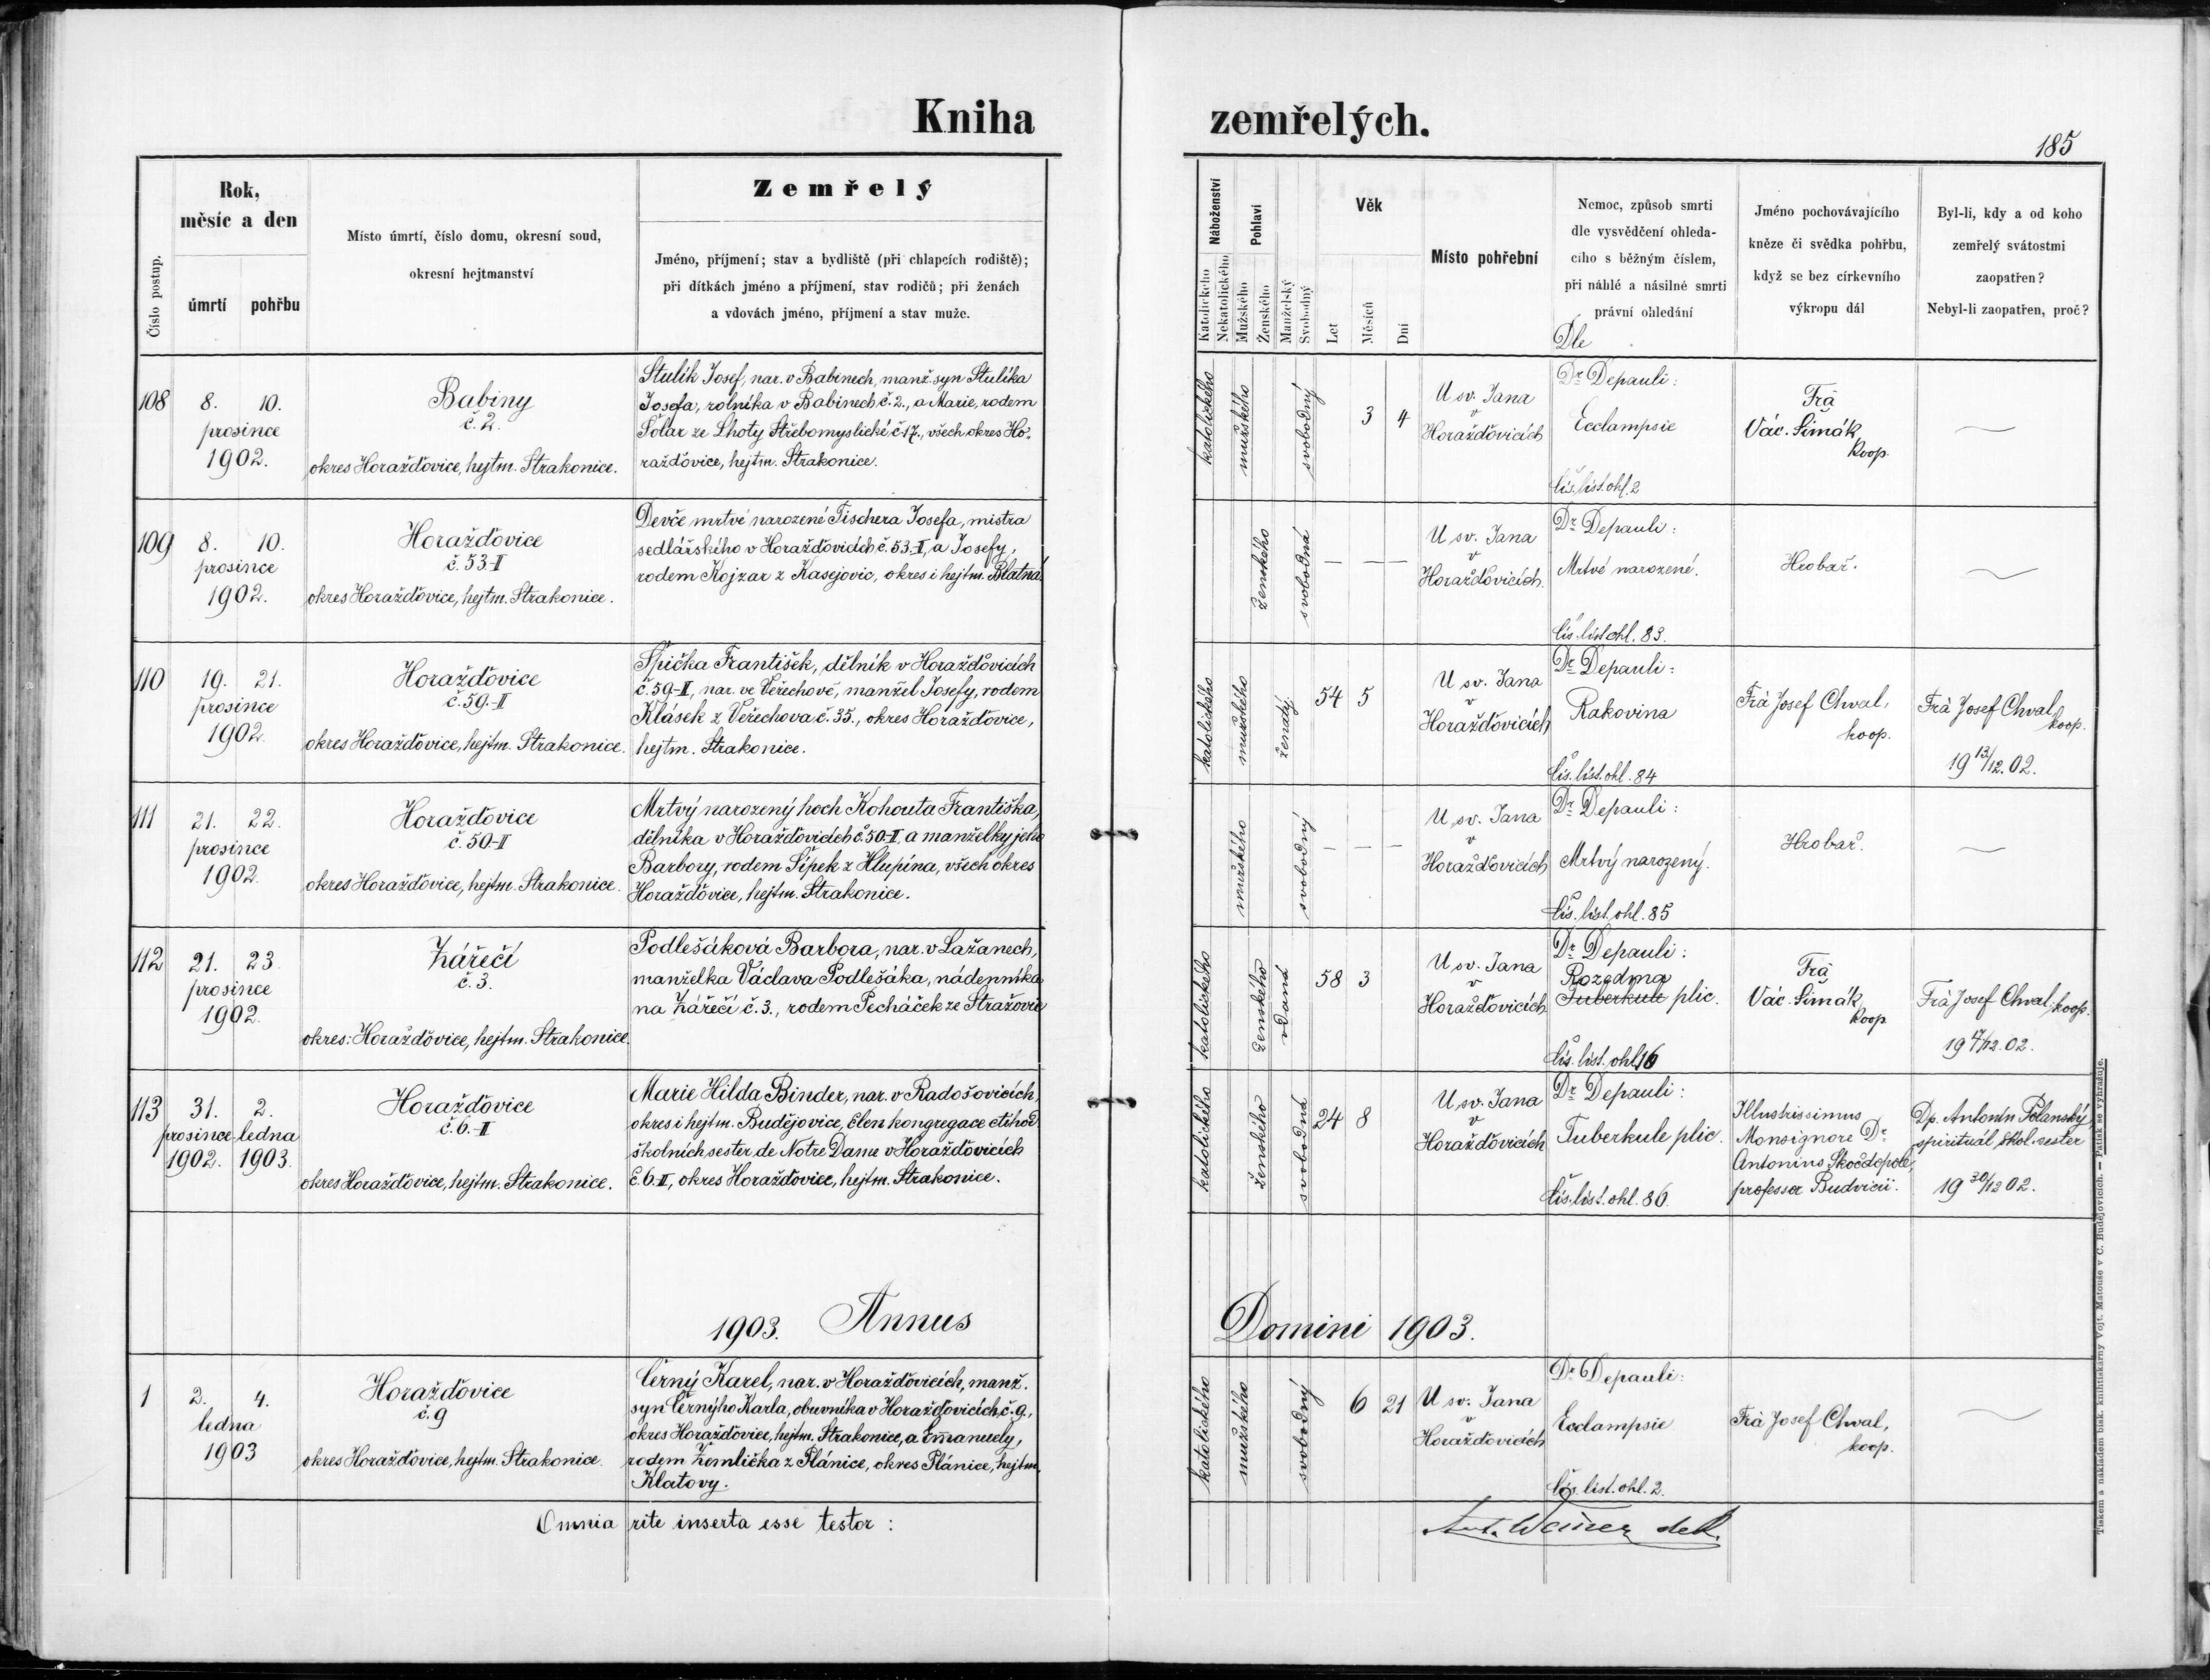 Kniha zemřelých.
185
Číslo postup.
Rok,
měsíc a den
úmrtí
pohřbu
Místo úmrtí, číslo domu, okresní soud,
okresní hejtmanství
Zemřelý
Jméno, příjmení; stav a bydliště (při chlapcích rodiště);
při dítkách jméno a příjmení, stav rodičů; při ženách
a vdovách jméno, příjmení a stav muže.
Náboženství
Katolického
Nekatolického
Pohlaví
Mužského
Ženského
Manželský
Svobodný
Věk
Let
Měsíců
Dní
Místo pohřební
Nemoc, způsob smrti
dle vysvědčení ohleda-
cího s běžným číslem,
při náhlé a násilné smrti
právní ohledání
Jméno pochovávajícího
kněze či svědka pohřbu,
když se bez církevního
výkropu dál
Byl-li, kdy a od koho
zemřelý svátostmi
zaopatřen?
Nebyl-li zaopatřen, proč?
Dle
108
8. 10.
prosince
1902.
Babiny
č. 2.
okres Horažďovice, hejtm. Strakonice.
Stulík Josef, nar. v Babinech, manž. syn Stulíka
Josefa, rolníka v Babinech č. 2., a Marie, rodem
Šolar ze Lhoty Střebomyslické č. 17., všech okres Ho-
ražďovice, hejtm. Strakonice.
katolického
mužského
svobodný
3 4
U sv. Jana
v
Horažďovicích
Dr. Depauli:
Ecclampsie
Čís. list. ohl. 2
Frá
Vác. Šimák,
koop.
109
8. 10.
prosince
1902.
Horažďovice
č. 53-II
okres Horažďovice, hejtm. Strakonice.
Děvče mrtvé narozené Fischera Josefa, mistra
sedlářského v Horažďovicích č. 53-II, a Josefy,
rodem Kojzar z Kasejovic, okres i hejtm. Blatná.
ženského
svobodná
— — —
U sv. Jana
v
Horažďovicích.
Dr. Depauli:
Mrtvé narozené.
Čís. list. ohl. 83.
Hrobař.
110
19. 21.
prosince
1902.
Horažďovice
č. 59.-II
okres Horažďovice, hejtm. Strakonice.
Špička František, dělník v Horažďovicích
č. 59-II, nar. ve Veřechově, manžel Josefy, rodem
Klásek z Veřechova č. 35., okres Horažďovice,
hejtm. Strakonice.
katolického
mužského
ženatý.
54 5
U sv. Jana
v
Horažďovicích
Dr. Depauli:
Rakovina
Čís. list. ohl. 84
Frá Josef Chval,
koop.
Frá Josef Chval,
koop.
19 13/12. 02.
111
21. 22.
prosince
1902.
Horažďovice
č. 50-II
okres Horažďovice, hejtm. Strakonice.
Mrtvý narozený hoch Kohouta Františka,
dělníka v Horažďovicích č. 50-II, a manželky jeho
Barbory, rodem Šípek z Hlupína, všech okres
Horažďovice, hejtm. Strakonice.
mužského
svobodný
— — —
U sv. Jana
v
Horažďovicích
Dr. Depauli:
Mrtvý narozený.
Čís. list. ohl. 85
Hrobař.
112
21. 23.
prosince
1902.
Zářečí
č. 3.
okres: Horažďovice, hejtm. Strakonice.
Podlešáková Barbora, nar. v Lažanech,
manželka Václava Podlešáka, nádenníka
na Zářečí č. 3., rodem Pecháček ze Stražovic
katolického
ženského
vdaná
58 3
U sv. Jana
v
Horažďovicích
Dr. Depauli:
Rozedma
Tuberkule plic.
Čís. list. ohl. 16
Frá
Vác. Šimák,
koop
Frá Josef Chval, koop.
19 17/12. 02.
113
31. 2.
prosince ledna
1902. 1903.
Horažďovice
č. 6.-II
okres Horažďovice, hejtm. Strakonice.
Marie Hilda Binder, nar. v Radošovicích,
okres i hejtm. Budějovice, člen kongregace ctihod.
školních sester de Notre Dame v Horažďovicích
č. 6.-II, okres Horažďovice, hejtm. Strakonice.
katolického
ženského
svobodná
24 8
U sv. Jana
v
Horažďovicích
Dr. Depauli:
Tuberkule plic.
Čís. list. ohl. 86.
Illustrissimus
Monsignore Dr.
Antonius Skočdopole,
professor Budvicii.
Dp. Antonín Polanský
spirituál škol. sester
19 30/12 02.
1903. Annus Domini 1903.
1
2. 4.
ledna
1903
Horažďovice
č. 9
okres Horažďovice, hejtm. Strakonice.
Černý Karel, nar. v Horažďovicích, manž.
syn Černýho Karla, obuvníka v Horažďovicích, č. 9.,
okres Horažďovice, hejtm. Strakonice, a Emanuely,
rodem Žemlička z Plánice, okres Plánice, hejtm.
Klatovy.
katolického
mužského
svobodný
6 21
U sv. Jana
v
Horažďovicích
Dr. Depauli:
Ecclampsie
Čís. list. ohl. 2.
Frá Josef Chval,
koop.
Omnia rite inserta esse testor:
Tiskem a nákladem bisk. knihtiskárny Vojt. Matouše v C. Budějovicích. — Patisk se vyhražuje.